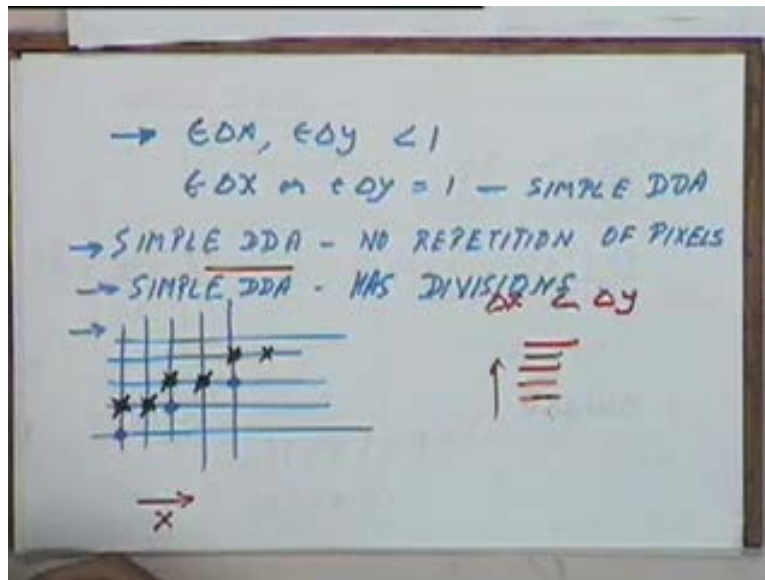 → ϵΔX, ϵΔy < 1
ϵΔX or ϵΔy = 1 — SIMPLE DDA
→ SIMPLE DDA - NO REPETITION OF PIXELS
→ SIMPLE DDA - HAS DIVISIONS
→
Δx < Δy
x